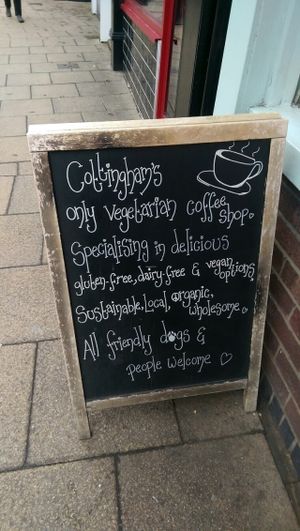 Cottingham's
only vegetarian coffee shop.
Specialising in delicious
gluten-free, dairy-free & vegan options
Sustainable, Local, organic, wholesome.
All friendly dogs &
people welcome